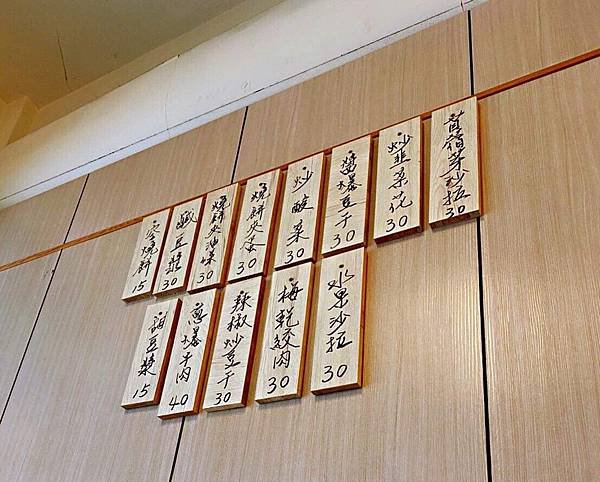 苜蓿芽沙拉 30
炒韭菜花 30
醬爆豆干 30
炒酸菜 30
燒餅夾蛋 30
燒餅夾油條 30
鹹豆漿 30
空燒餅 15
水果沙拉 30
梅乾絞肉 30
辣椒炒豆干 30
蔥爆牛肉 40
甜豆漿 15